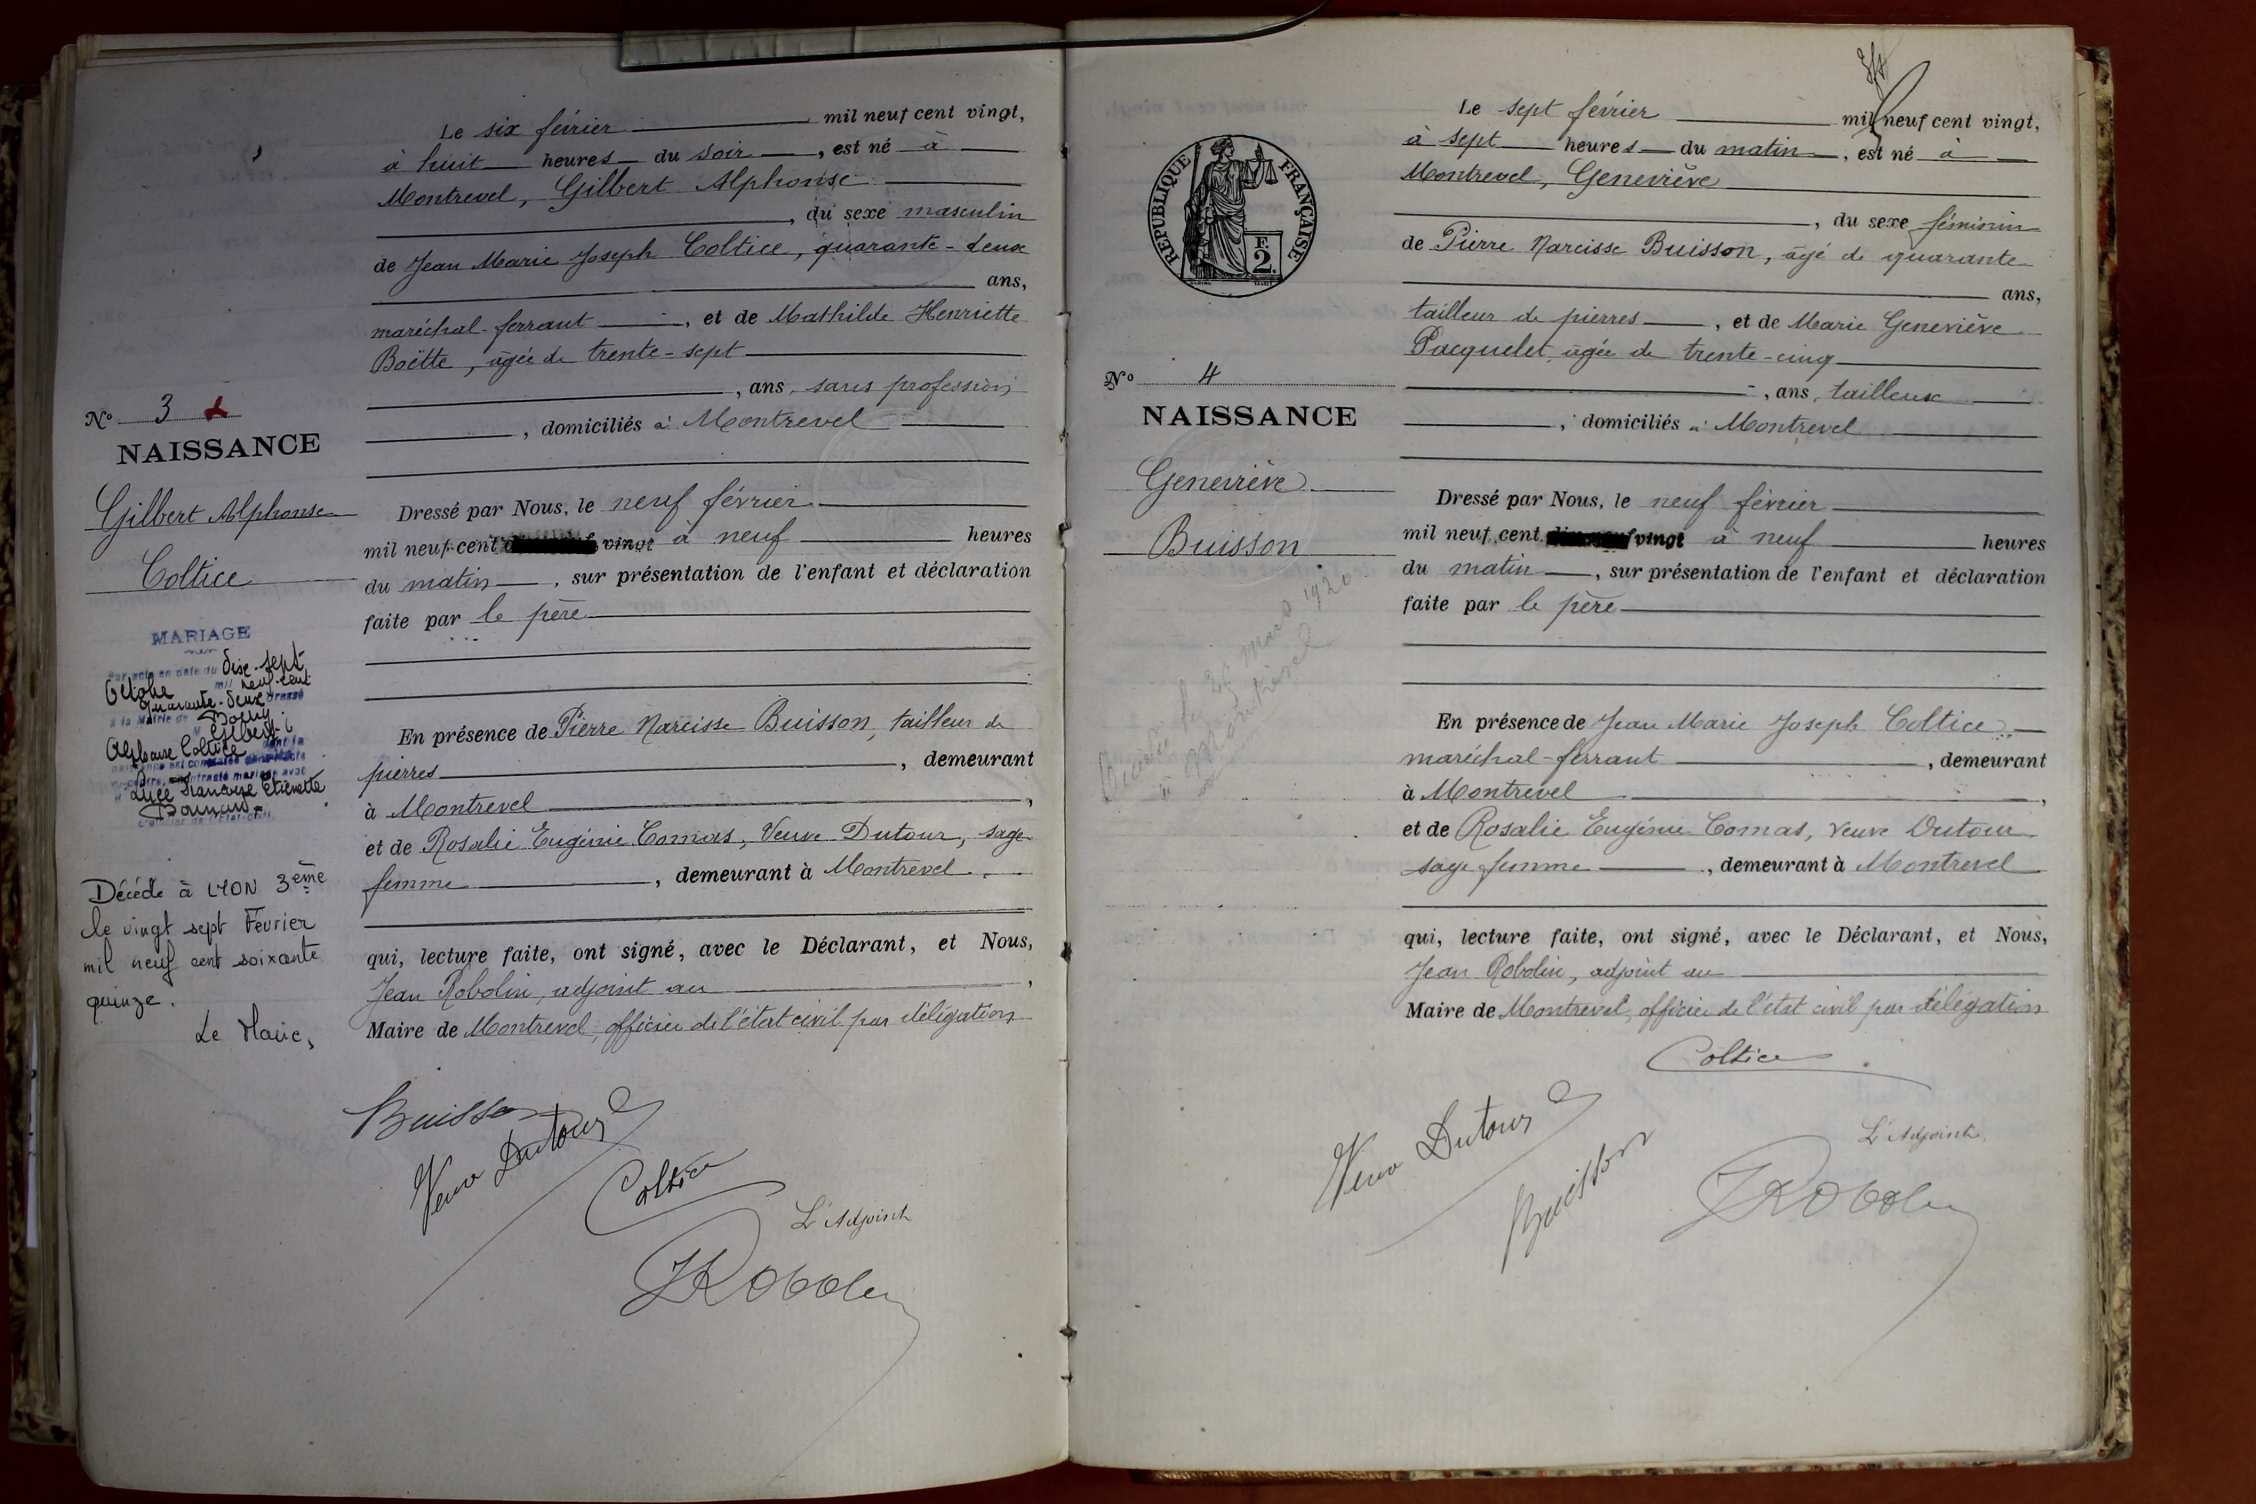 Le six février mil neuf cent vingt,
à huit heures du soir, est né à
Montrevel, Gilbert Alphonse
, du sexe masculin
de Jean Marie Joseph Coltice, quarante-deux
ans,
maréchal-ferrant, et de Mathilde Henriette
Boëtte, âgée de trente-sept
, ans, sans profession
, domiciliés à Montrevel
N° 3
NAISSANCE
Gilbert Alphonse
Coltice
Dressé par Nous, le neuf février
mil neuf cent vingt à neuf heures
du matin, sur présentation de l'enfant et déclaration
faite par le père
MARIAGE
Par acte en date du dix-sept
Octobre mil neuf cent
quarante-deux dressé
à la Mairie de
Gilbert
Alphonse Coltice dont la
contracté mariage avec
Lucie Françoise Etiennette
Décédé à LYON 3ème
le vingt sept Février
mil neuf cent soixante
quinze.
Le Maire,
En présence de Pierre Narcisse Buisson, tailleur de
pierres, demeurant
à Montrevel,
et de Rosalie Eugénie Comas, Veuve Dutour, sage
femme, demeurant à Montrevel
qui, lecture faite, ont signé, avec le Déclarant, et Nous,
Jean Robolin, adjoint au,
Maire de Montrevel, officier de l'état civil par délégation
Buisson
Veuve Dutour
Coltice
L'Adjoint
JRobolin
Le sept février mil neuf cent vingt,
à sept heures du matin, est né à
Montrevel, Geneviève
, du sexe féminin
de Pierre Narcisse Buisson, âgé de quarante
ans,
tailleur de pierres, et de Marie Geneviève
Pacquelet âgée de trente-cinq
, ans, tailleuse
, domiciliés à Montrevel
REPUBLIQUE FRANÇAISE
F.
2.
N° 4
NAISSANCE
Geneviève
Buisson
Dressé par Nous, le neuf février
mil neuf cent vingt à neuf heures
du matin, sur présentation de l'enfant et déclaration
faite par le père
le 25 mars 1920
à Montrevel
En présence de Jean Marie Joseph Coltice
maréchal-ferrant, demeurant
à Montrevel,
et de Rosalie Eugénie Comas, veuve Dutour
sage femme, demeurant à Montrevel
qui, lecture faite, ont signé, avec le Déclarant, et Nous,
Jean Robolin, adjoint au
Maire de Montrevel, officier de l'état civil par délégation
Coltice
Veuve Dutour
Buisson
L'Adjoint
JRobolin